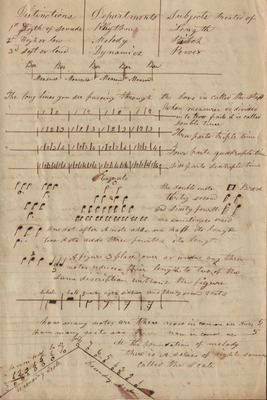 Distinctions Departments Subjects treated of
1st Length of Sounds Rhythms Length
2d High or low Melody Pitch
3d Soft or loud Dynamics Power
Bar Bar Bar Bar Bar
Measure Measure Measure Measure
The long lines you see passing through the bars is called the Staff
When measures are divided
into two parts it is called
double time
Three parts triple time
Four parts quadruple time
Six parts sextuple time
the double note
and sixty fourth
are sometimes used
One dot after a note adds one half its length
two dots adds three fourths its length
A figure 3 placed over or under any three
notes reduces their length to two of the
same description without the figure
how many notes are there now in common use 5
how many rests are now in common use 5
At the foundation of melody
there is a series of eight sounds
called the Scale